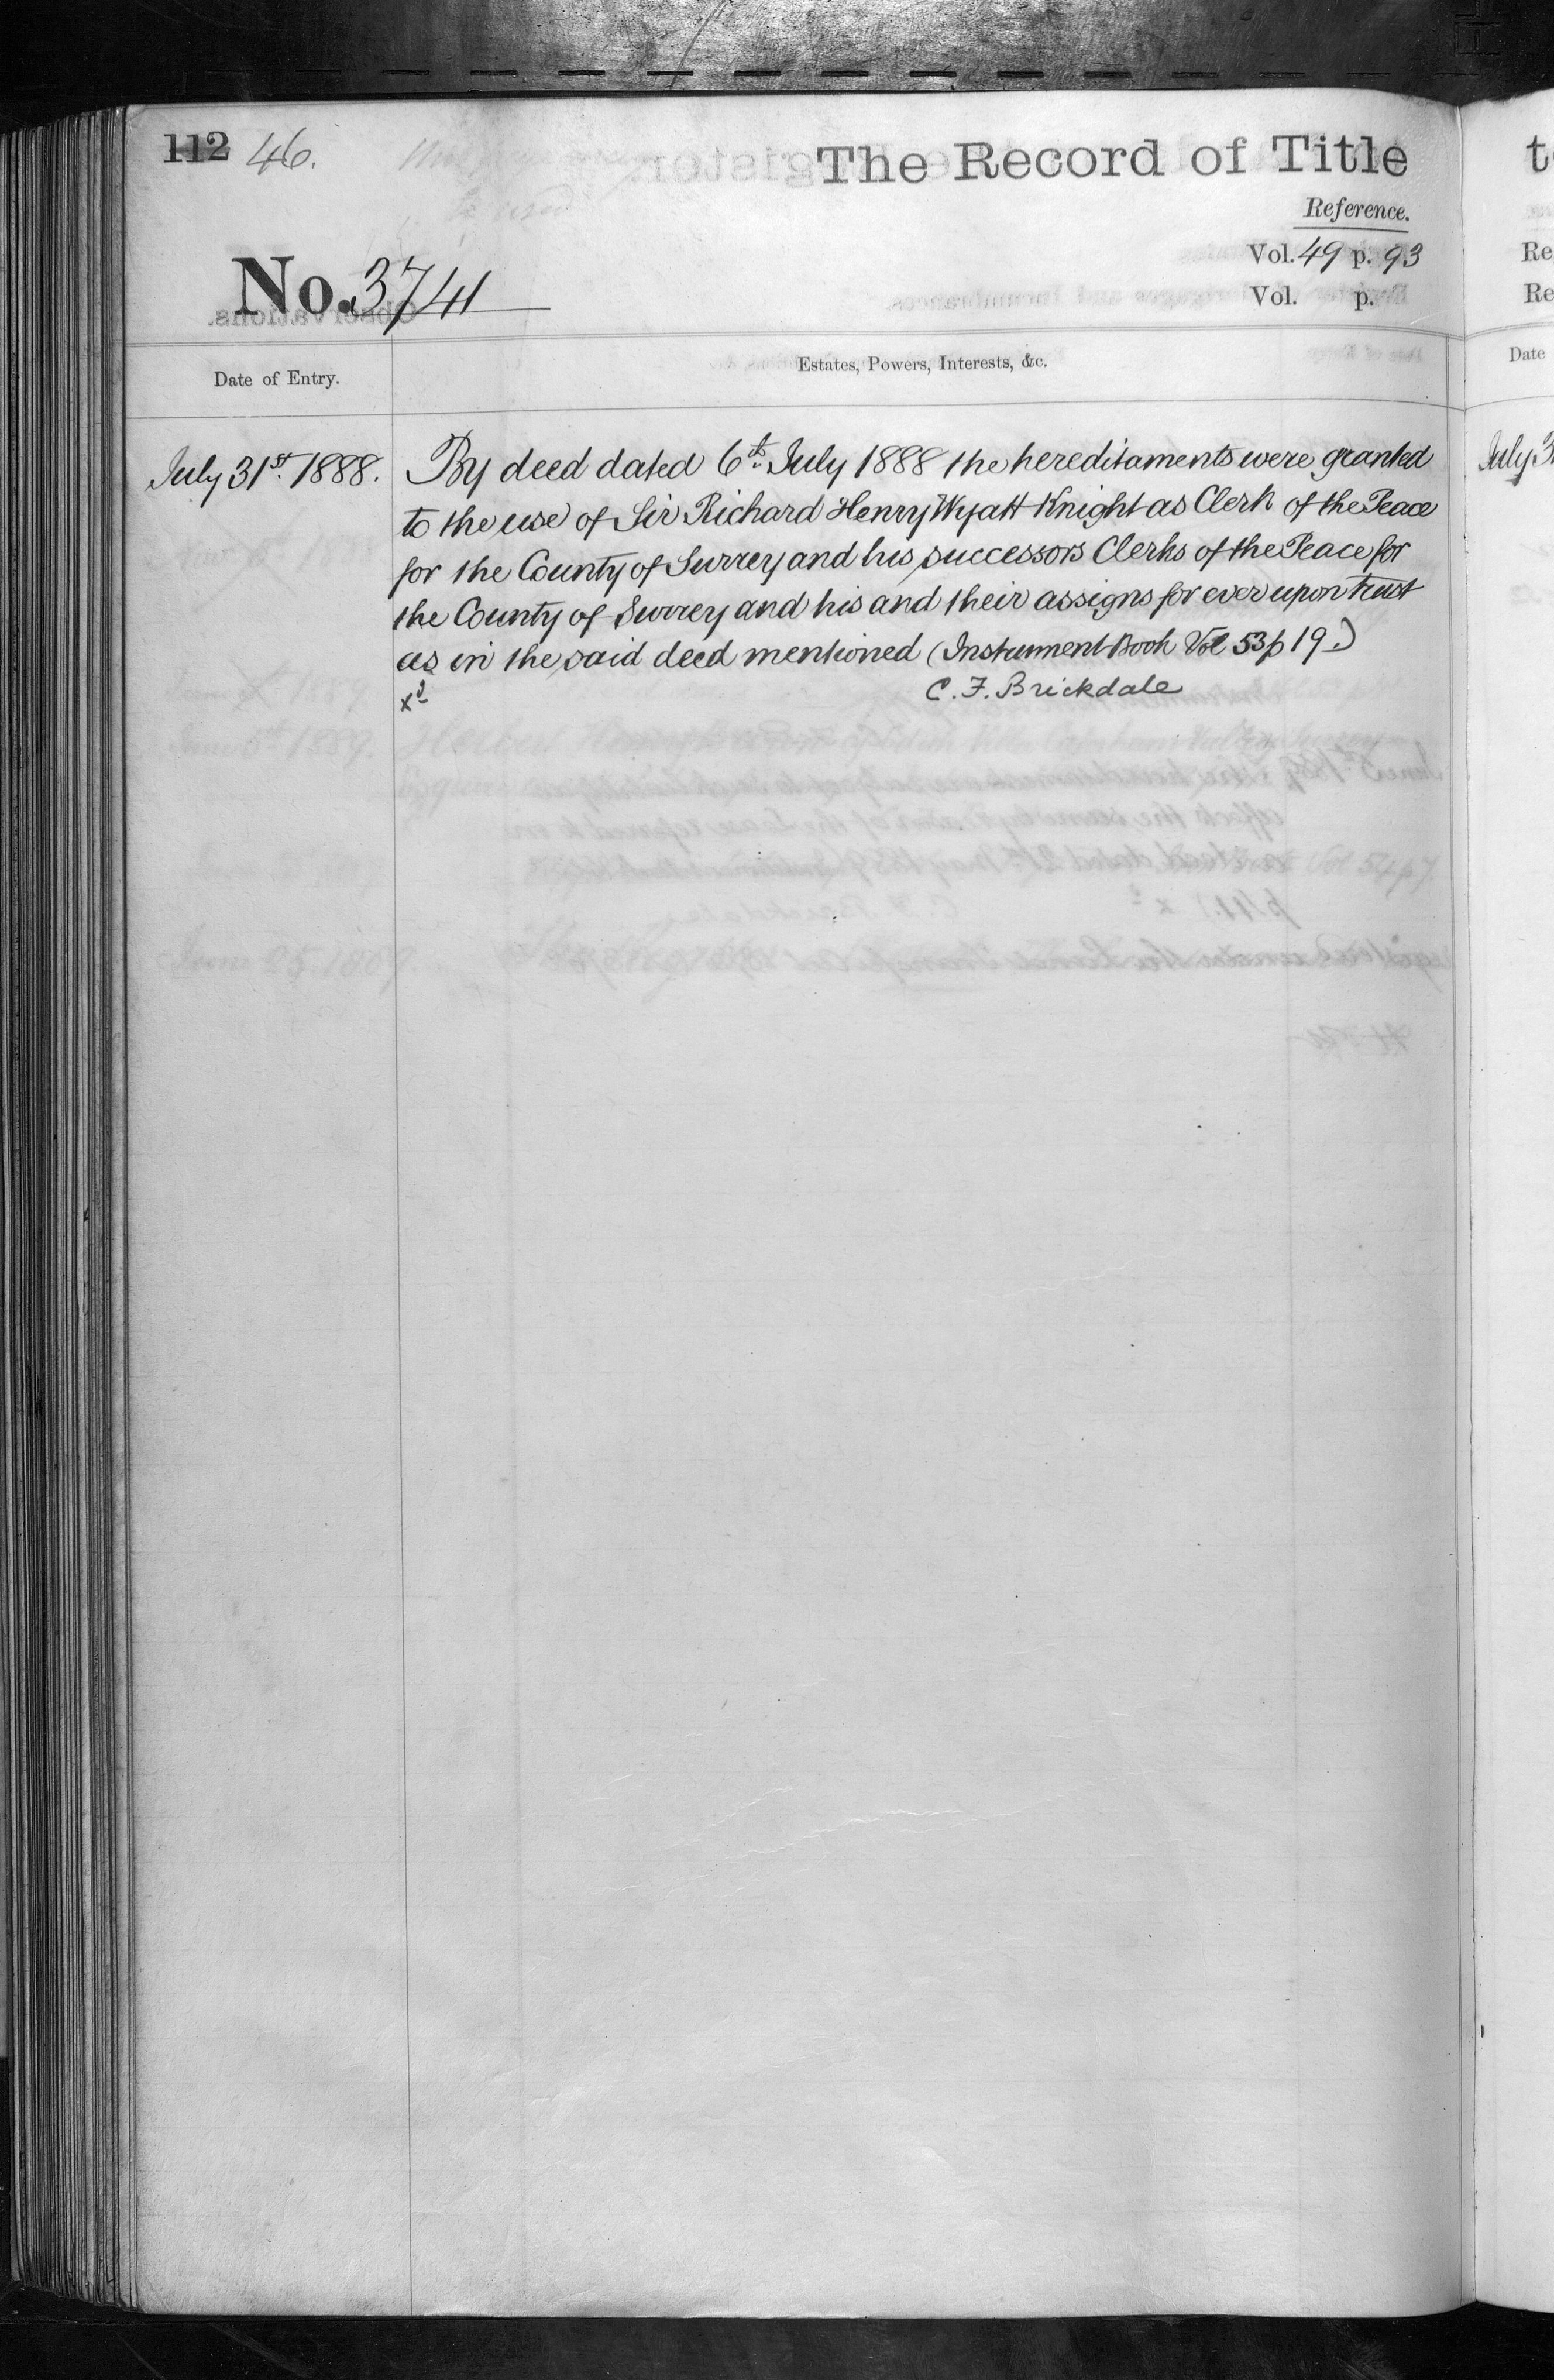 112 46.
The Record of Title
Reference.
Vol. 49 p. 93
Vol. p.
No. 3741
Date of Entry.
Estates, Powers, Interests, &c.
July 31st 1888.
By deed dated 6th July 1888 the hereditaments were granted
to the use of Sir Richard Henry Wyatt Knight as Clerk of the Peace
for the County of Surrey and his successors Clerks of the Peace for
the County of Surrey and his and their assigns for ever upon trust
as in the said deed mentioned (Instrument Book Vol 53 p 19.)
C. F. Brickdale
June 25. 1889.
Re
Re
Date
July 3